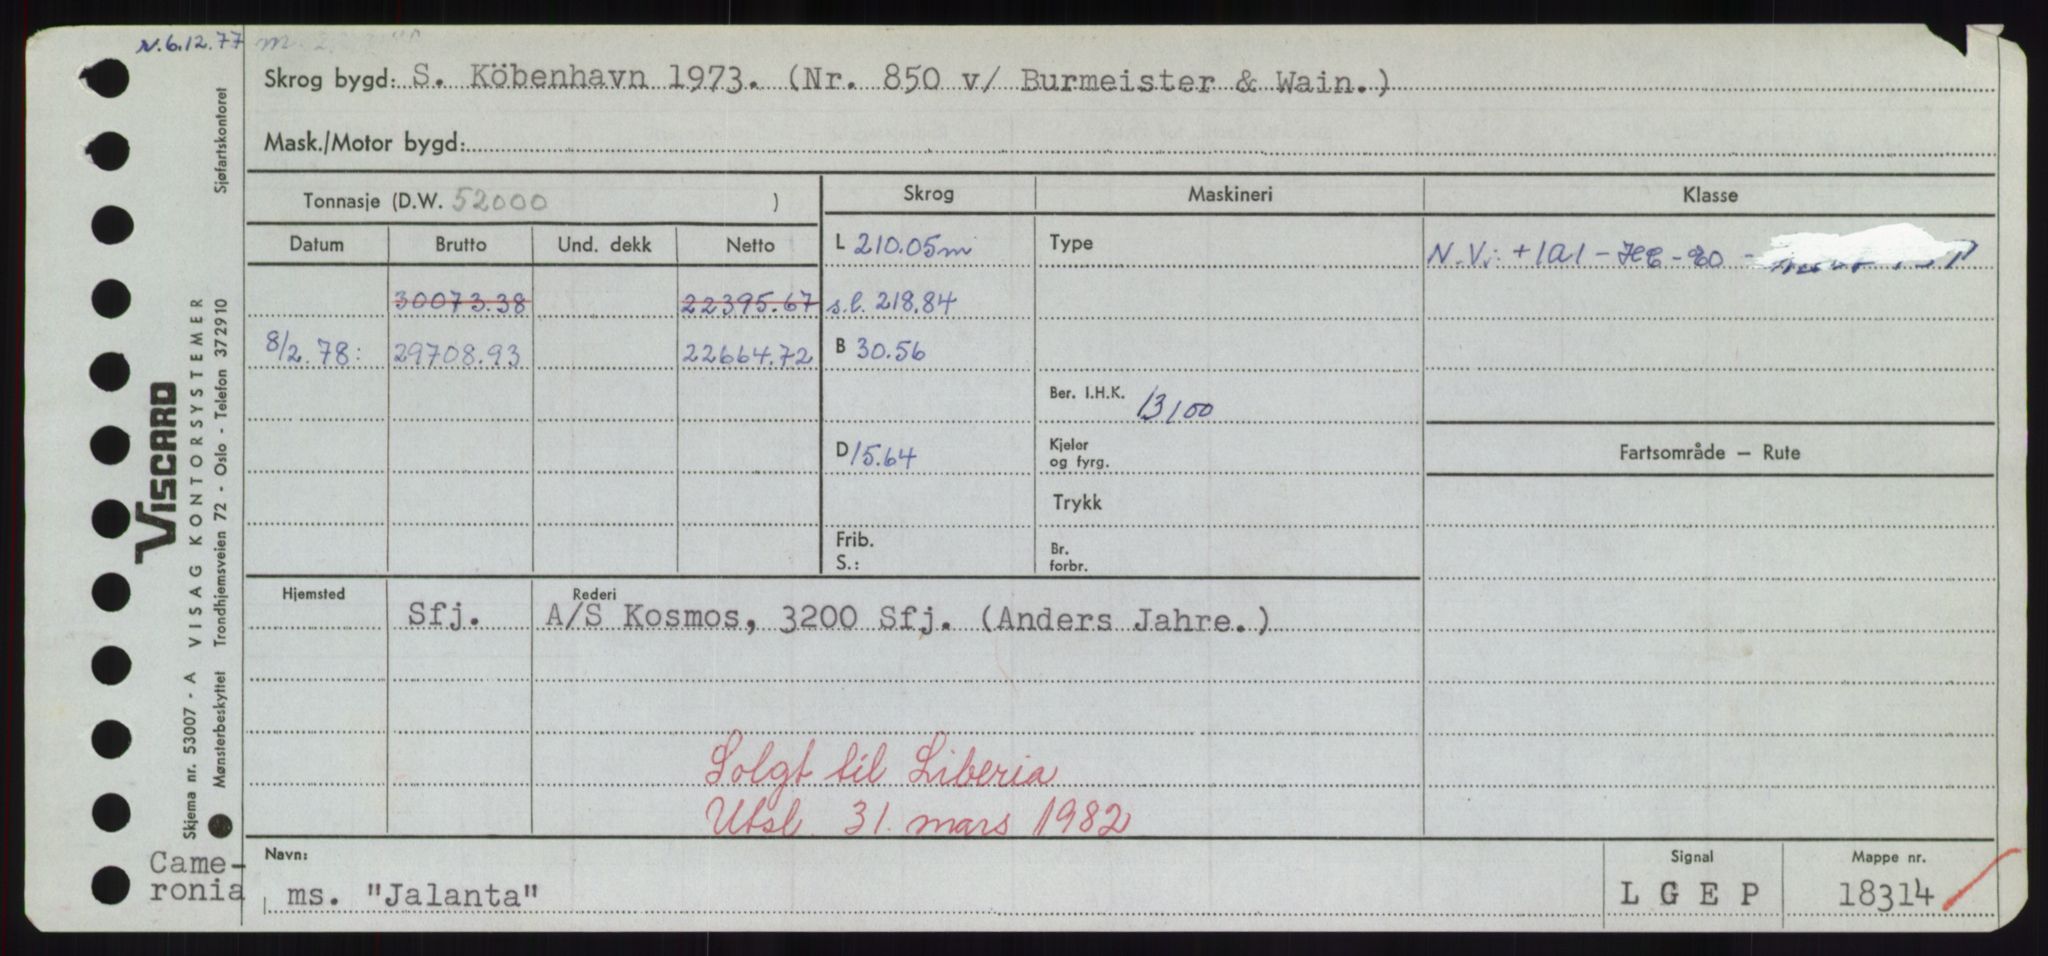 N. 6.12.77
Skrog bygd: S. Köbenhavn 1973. (Nr. 850 v/ Burmeister & Wain.)
Mask./Motor bygd:
Tonnasje (D.W. 52000 )
Skrog Maskineri Klasse
Datum Brutto Und. dekk Netto
L 210.05m Type N.V.: +1A1 - HC - E0 -
30073.38 22395.67 s.l. 218.84
8/2.78: 29708.93 22664.72 B 30.56
Ber. I.H.K. 13100
D 15.64 Kjeler og fyrg.
Fartsområde — Rute
Trykk
Frib.
S.:
Br. forbr.
Hjemsted Sfj. Rederi A/S Kosmos, 3200 Sfj. (Anders Jahre.)
Solgt til Liberia
Utsl. 31. mars 1982
Navn: Signal Mappe nr.
Came-
ronia
ms. "Jalanta" L G E P 18314
Sjøfartskontoret
VISCARD
VISAG KONTORSYSTEMER
Trondhjemsveien 72 - Oslo - Telefon 372910
Skjema nr. 53007 - A
Mønsterbeskyttet